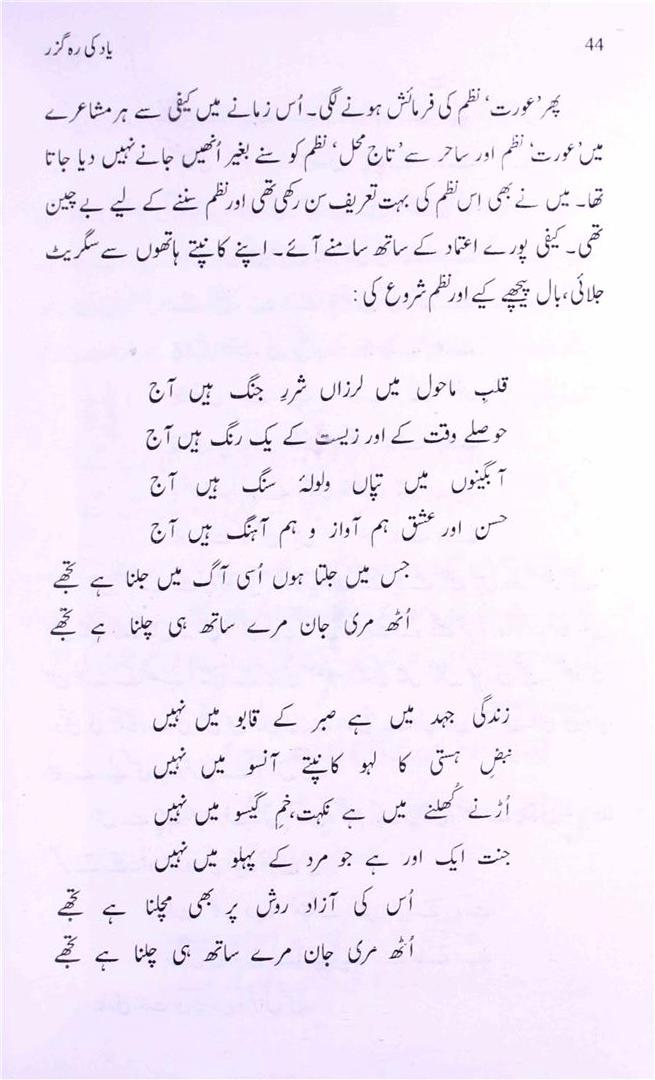 44
یاد کی رہ گزر
پھر ’عورت‘ نظم کی فرمائش ہونے لگی۔ اُس زمانے میں کیفی سے ہر مشاعرے
میں ’عورت‘ نظم اور ساحر سے ’تاج محل‘ نظم کو سنے بغیر اُنھیں جانے نہیں دیا جاتا
تھا۔ میں نے بھی اس نظم کی بہت تعریف سن رکھی تھی اور نظم سننے کے لیے بے چین
تھی۔ کیفی پورے اعتماد کے ساتھ سامنے آئے۔ اپنے کانپتے ہاتھوں سے سگریٹ
جلائی، بال پیچھے کیے اور نظم شروع کی:
قلبِ ماحول میں لرزاں شررِ جنگ ہیں آج
حوصلے وقت کے اور زیست کے یک رنگ ہیں آج
آبگینوں میں تپاں ولولۂ سنگ ہیں آج
حسن اور عشق ہم آواز و ہم آہنگ ہیں آج
جس میں جلتا ہوں اُسی آگ میں جلنا ہے تجھے
اُٹھ مری جان مرے ساتھ ہی چلنا ہے تجھے
زندگی جہد میں ہے صبر کے قابو میں نہیں
نبضِ ہستی کا لہو کانپتے آنسو میں نہیں
اُڑنے کُھلنے میں ہے نکہت، خمِ گیسو میں نہیں
جنت ایک اور ہے جو مرد کے پہلو میں نہیں
اُس کی آزاد روش پر بھی مچلنا ہے تجھے
اُٹھ مری جان مرے ساتھ ہی چلنا ہے تجھے